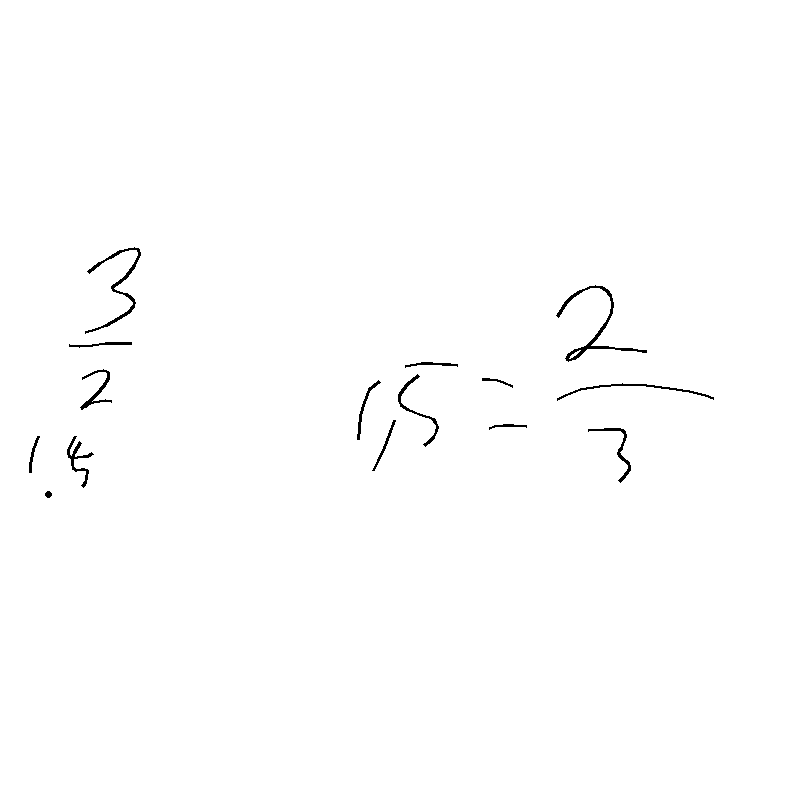 3
2
1.5
1,5 = 2
3